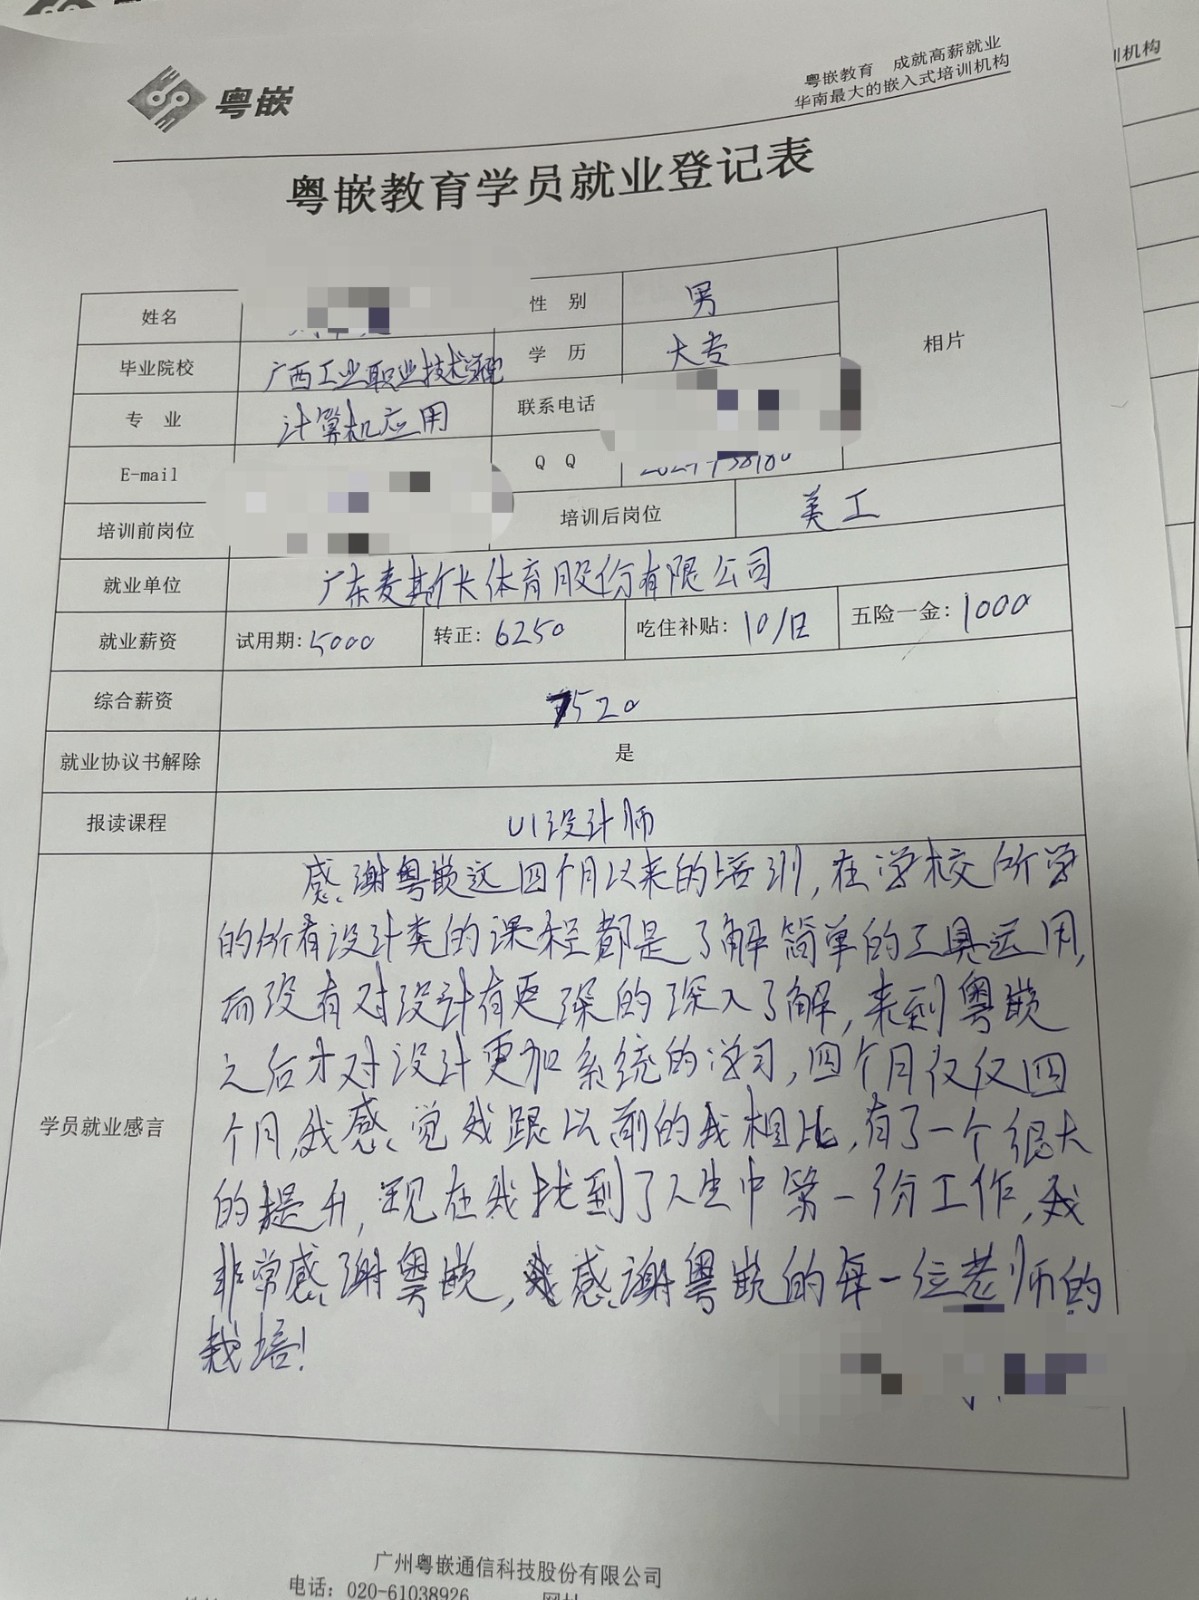 粤嵌
粤嵌教育 成就高薪就业
华南最大的嵌入式培训机构
训机构
粤嵌教育学员就业登记表
姓名 性 别 男 相片
毕业院校 广西工业职业技术学院 学 历 大专
专 业 计算机应用 联系电话
E-mail Q Q
培训前岗位 培训后岗位 美工
就业单位 广东麦斯卡体育股份有限公司
就业薪资 试用期:5000 转正:6250 吃住补贴:10/日 五险一金:1000
综合薪资 7520
就业协议书解除 是
报读课程 UI设计师
学员就业感言
感谢粤嵌这四个月以来的培训,在学校所学
的所有设计类的课程都是了解简单的工具运用,
而没有对设计有更深的深入了解,来到粤嵌
之后才对设计更加系统的学习,四个月仅仅四
个月,我感觉我跟以前的我相比,有了一个很大
的提升,现在我找到了人生中第一份工作,我
非常感谢粤嵌,我感谢粤嵌的每一位老师的
栽培!
广州粤嵌通信科技股份有限公司
电话:020-61038926